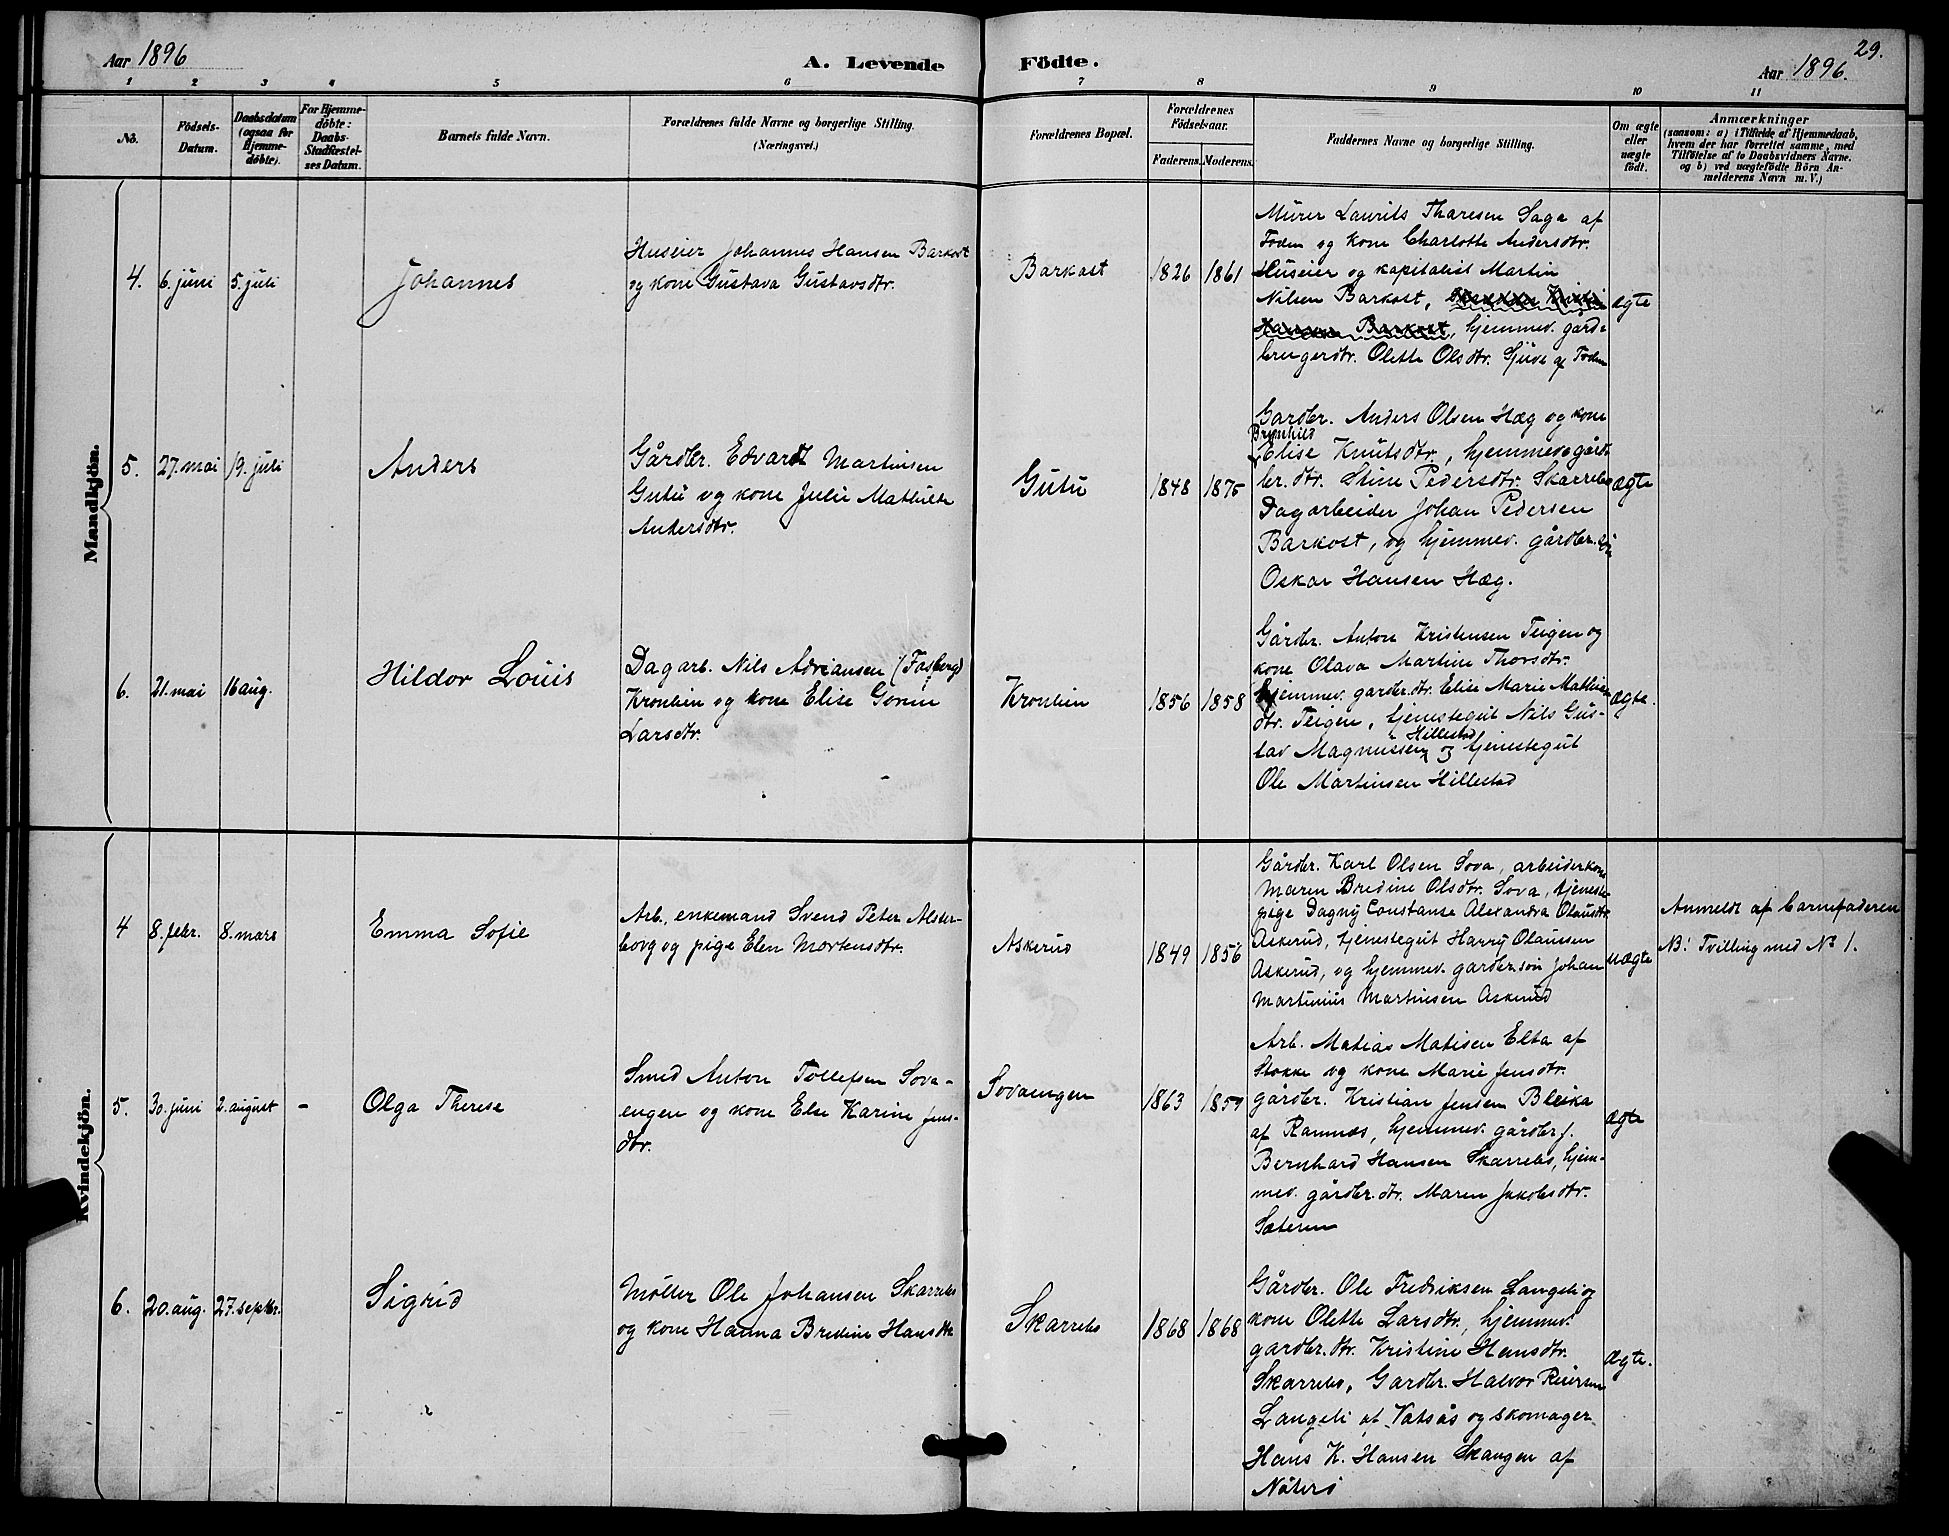 Aar 1896
A. Levende Födte.
Aar 1896.
29.
1 2 3 4 5 6 7 8 9 10 11
No.
Födsels-
Datum.
Daabsdatum
(ogsaa for
Hjemme-
döbte).
For Hjemme-
döbte:
Daabs-
Stadfæstel-
ses Datum.
Barnets fulde Navn.
Forældrenes fulde Navne og borgerlige Stilling.
(Næringsvei.)
Forældrenes Bopæl.
Forældrenes
Födselsaar.
Faderens. Moderens.
Faddernes Navne og borgerlige Stilling.
Om ægte
eller
uægte
født.
Anmærkninger
(saasom: a) i Tilfælde af Hjemmedaab,
hvem der har forrettet samme, med
Tilföielse af to Daabsvidners Navne.
og b) ved uægtefödte Börn An-
melderens Navn m. V.)
Mandkjön.
4. 6. juni 5. juli
Johannes
Huseier Johannes Hansen Barkost
og kone Gustava Gustavsdtr.
Barkost
1826 1861
Murer Laurits Tharesen Saga af
Foden og kone Charlotte Andersdtr.
Huseier og kapitalist Martin
Nilsen Barkost,
Hansen Barkost, hjemmev. gard-
brugerdtr. Olette Olsdtr. Sjuve af Foden
ægte
5. 27. mai 19. juli
Anders
Gårdbr. Edvardt Martinsen
Gutu og kone Julie Mathilde
Andersdtr.
Gutu
1848 1875
Gardbr. Anders Olsen Hæg og kone
Brynhild
Elise Knutsdtr., hjemmev. gård-
br. dtr. Stine Pedersdtr. Skarrebo
Dagarbeider Johan Pedersen
Barkost, og hjemmev. gårdbr. søn
Oskar Hansen Hæg.
ægte
6. 21. mai 16 aug.
Hildor Louis
Dagarb. Nils Adriansen (Fosberg)
Kronlien og kone Elise Gorine
Larsdtr.
Kronlien
1856 1858
Gårdbr. Anton Kristensen Teigen og
kone Olava Martine Thorsdtr.
hjemmev. gardbr. dtr. Elise Marie Mathis-
dtr. Teigen, tjenestegut Nils Gus-
Hillestad
tav Magnussen og tjenestegut
Ole Martinsen Hillestad
ægte.
Kvindekjön.
4 8. febr. 8. mars
Emma Sofie
Arb. enkemand Svend Peter Alster-
borg og pige Elen Mortensdtr.
Askerud
1849 1856
Gårdbr. Karl Olsen Sova, arbeiderkone
Maren Bredine Olsdtr. Sova, tjeneste-
pige Dagny Constanse Alexandra Olausdtr.
Askerud, tjenestegut Harry Olaussen
Askerud, og hjemmev. gardbr. søn Johan
Martinius Martinsen Askerud
uægte
Anmeldt af barnefaderen
NB! Tvilling med No 1.
5. 30. juni 2. august -
Olga Therese
Smed Anton Tollefsen Sova-
engen og kone Else Karine Jens-
dtr.
Sovaengen
1863 1859
Arb. Matias Matisen Elta af
Stokke og kone Marie Jensdtr.
gårdbr. Kristian Jensen Bleika
af Ramnæs, hjemmev. gårdbr. s.
Bernhard Hansen Skarrebo, hjem-
mev. gårdbr. dtr. Maren Jakobsdtr.
Sæteren
ægte
6. 20. aug. 27. septbr.
Sigrid
Møller Ole Johansen Skarrebo
og kone Hanna Bredine Hansdtr.
Skarrebo
1868 1868
Gårdbr. Ole Fredriksen Langeli og
kone Olette Larsdtr., hjemmev.
gardbr. dtr. Kristine Hansdtr.
Skarrebo, Gardbr. Halvor Reiersen
Langeli af Vatsås og skomager
Hans K. Hansen Skaugen af
Nøterø
ægte.